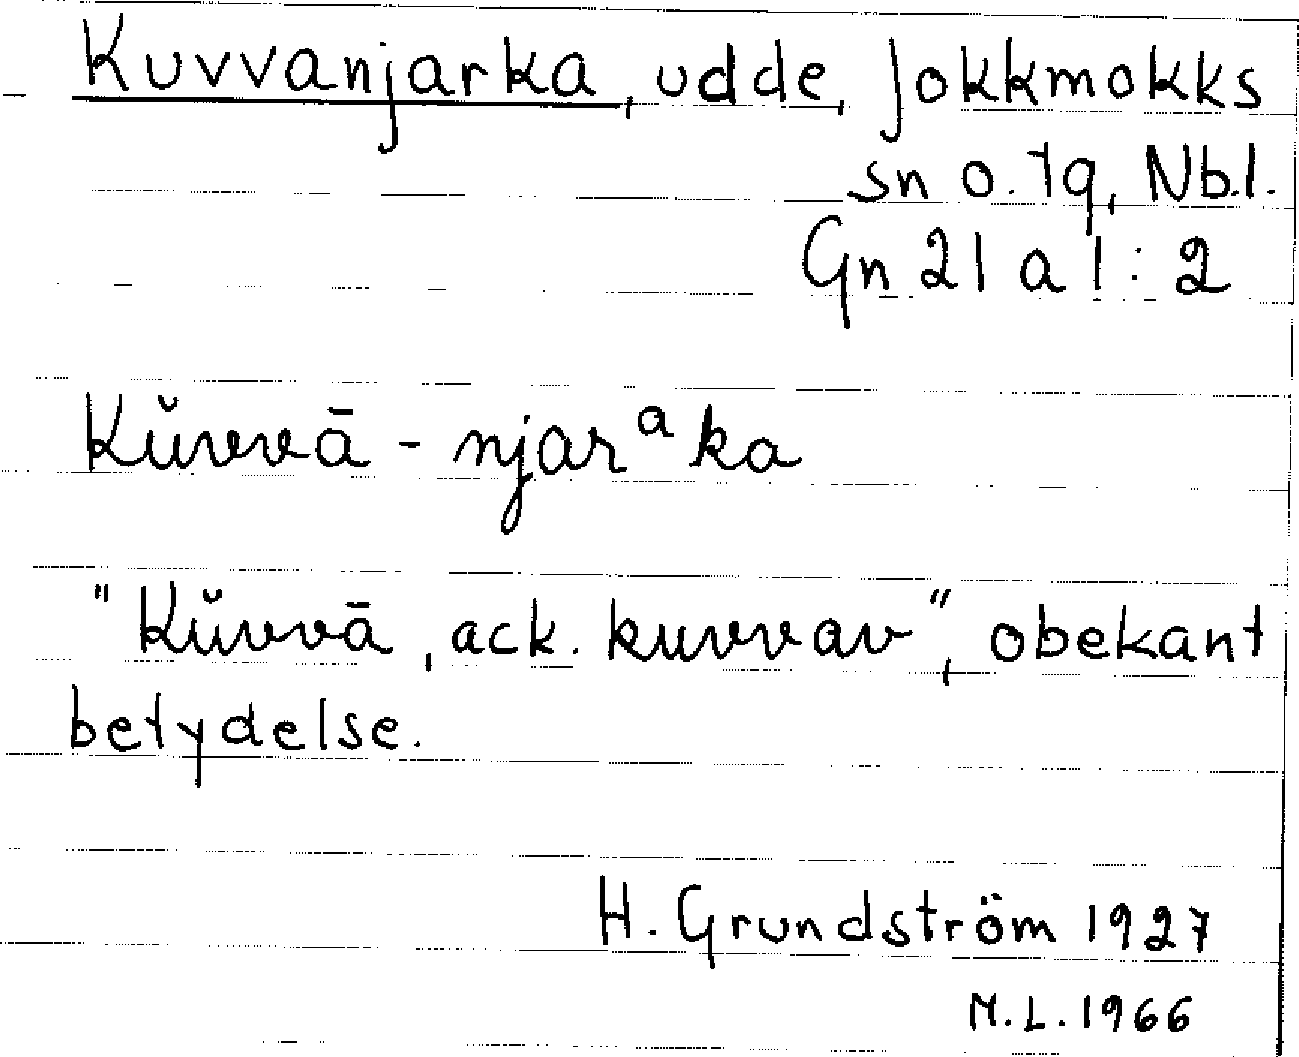 Kuvvanjarka, udde, Jokkmokks
sn o. tg, Nb.l.
Gn 21 a 1 : 2
Kŭvvā - njarᵃka
"Kŭvvā, ack. kuvvav", obekant
betydelse.
H. Grundström 1927
M.L. 1966